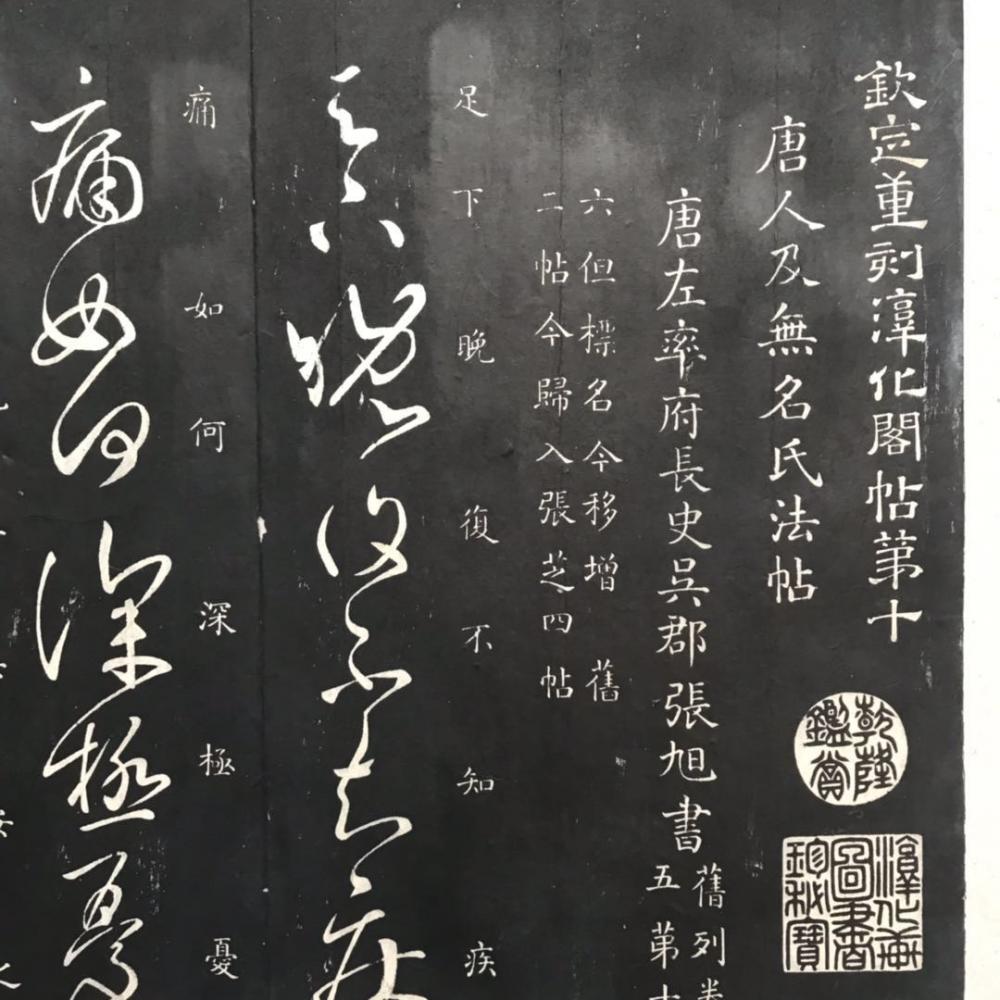 欽定重刻淳化閣帖第十
乾隆鑑賞
淳化軒圖書珍秘寶
唐人及無名氏法帖
唐左率府長史吳郡張旭書
舊列卷
五第十
六但標名今移增 舊
二帖今歸入張芝四帖
足下晚復不知疾
足下晚復不知疾
痛如何深極憂
痛如何深極憂